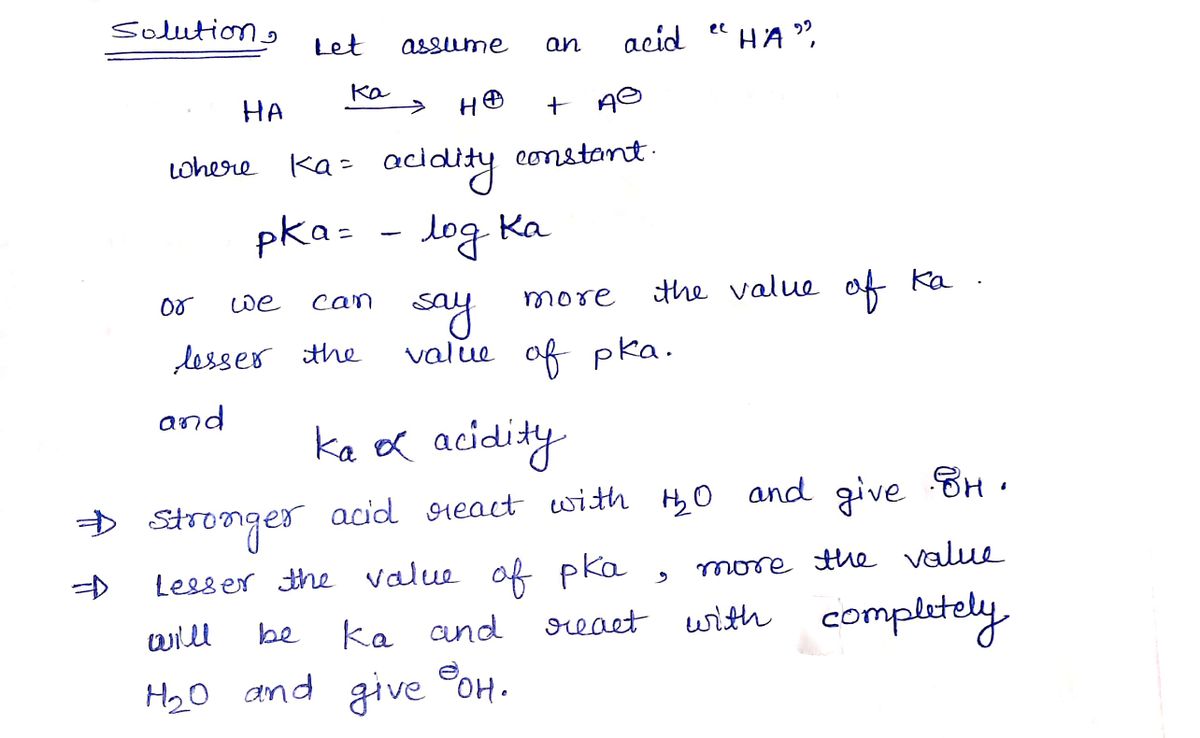 Solution, Let assume an acid "HA",
HA Ka → H⊕ + A⊖
where Ka = acidity constant.
pKa = - log Ka
or we can say more the value of Ka .
lesser the value of pka.
and
Ka ∝ acidity
⇒ Stronger acid react with H₂O and give ⊖OH .
⇒ Lesser the value of pKa , more the value
will be Ka and react with completely
H₂O and give ⊖OH.